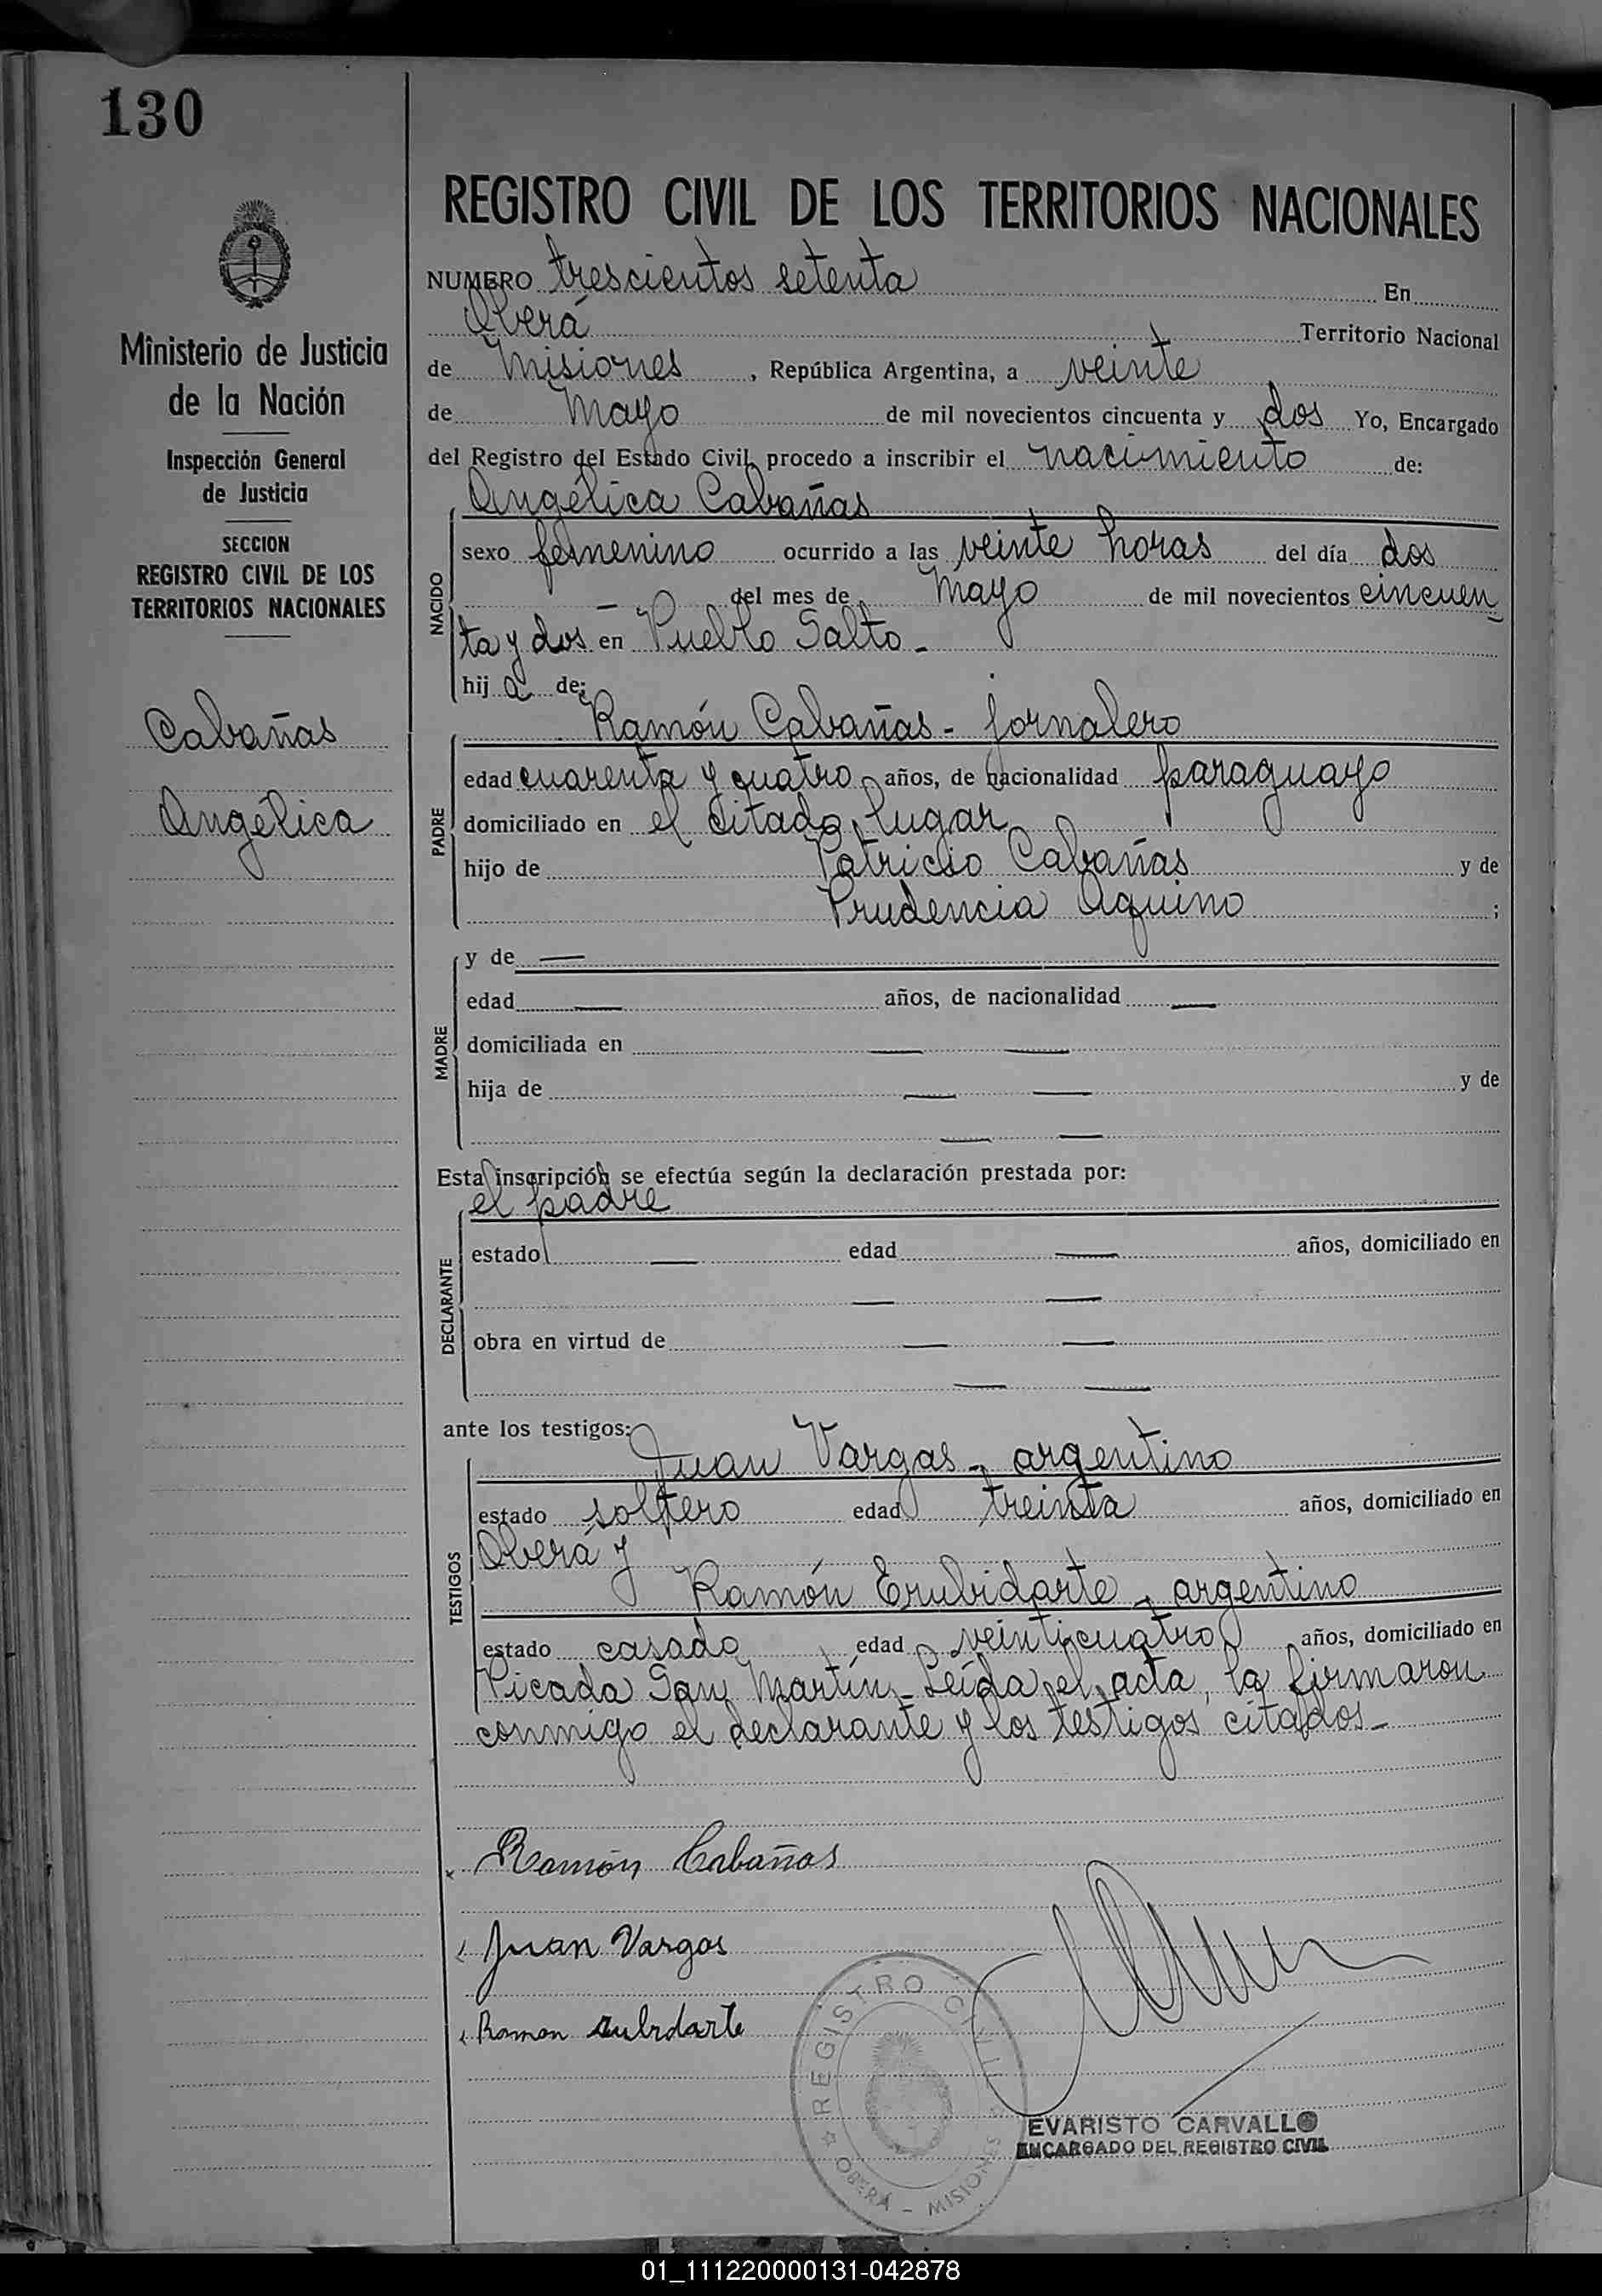 130
Ministerio de Justicia
de la Nación
Inspección General
de Justicia
SECCION
REGISTRO CIVIL DE LOS
TERRITORIOS NACIONALES
Cabañas
Angélica
REGISTRO CIVIL DE LOS TERRITORIOS NACIONALES
NUMERO trescientos setenta En
Oberá Territorio Nacional
de Misiones, República Argentina, a veinte
de Mayo de mil novecientos cincuenta y dos Yo, Encargado
del Registro del Estado Civil, procedo a inscribir el nacimiento de:
Angélica Cabañas
NACIDO
sexo femenino ocurrido a las veinte horas del día dos
— del mes de Mayo de mil novecientos cincuen
ta y dos en Pueblo Salto -
hija de:
Ramón Cabañas - jornalero
PADRE
edad cuarenta y cuatro años, de nacionalidad paraguayo
domiciliado en el citado lugar
hijo de Patricio Cabañas y de
Prudencia Aquino ;
MADRE
y de —
edad — años, de nacionalidad —
domiciliada en — —
hija de — — y de
— —
Esta inscripción se efectúa según la declaración prestada por:
el padre
DECLARANTE
estado — edad — años, domiciliado en
— —
obra en virtud de — —
— —
ante los testigos:
Juan Vargas - argentino
TESTIGOS
estado soltero edad treinta años, domiciliado en
Oberá y
Ramón Erubidarte - argentino
estado casado edad veinticuatro años, domiciliado en
Picada San Martín - Leída el acta, la firmaron
conmigo el declarante y los testigos citados -
Ramón Cabañas
Juan Vargas
Ramon
REGISTRO CIVIL
OBERÁ - MISIONES
EVARISTO CARVALLO
ENCARGADO DEL REGISTRO CIVIL
01_111220000131-042878